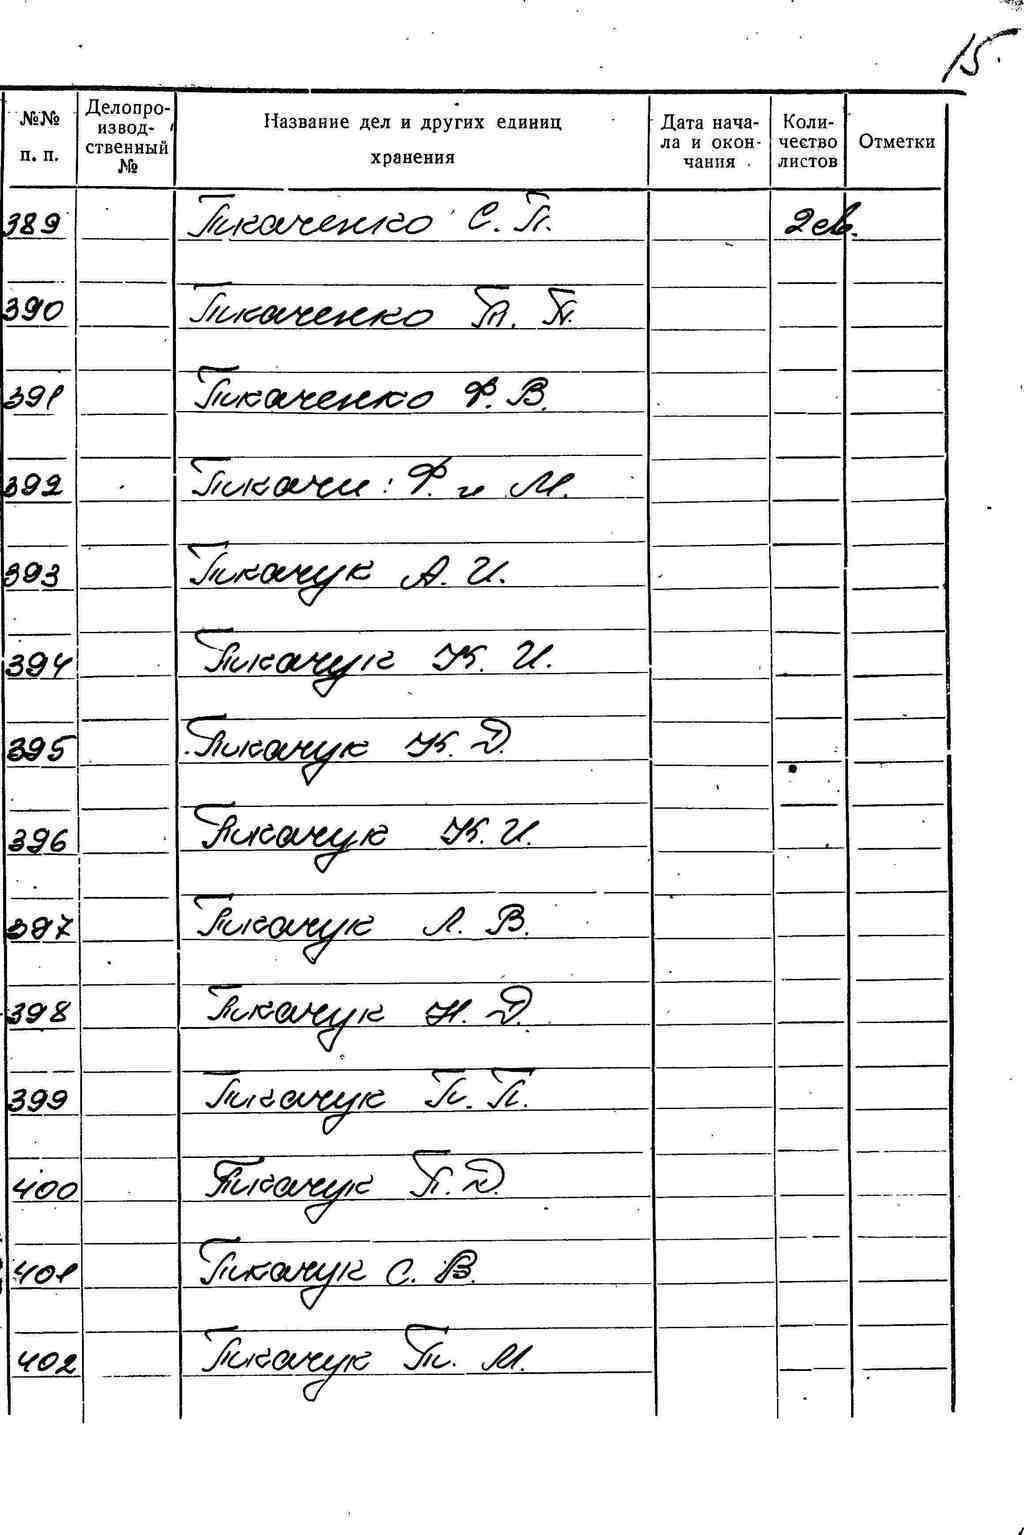 15.
№№ п. п. Делопро-извод-ственный № Название дел и других единиц хранения Дата нача-ла и окон-чания Коли-чество листов Отметки
389 Ткаченко С. П. 2
390 Ткаченко Т. П.
391 Ткаченко Ф. В.
392 Ткачи: Ф. и М.
393 Ткачук А. И.
394 Ткачук К. И.
395 Ткачук К. Д.
396 Ткачук К. И.
397 Ткачук Л. В.
398 Ткачук Н. Д.
399 Ткачук П. П.
400 Ткачук П. Д.
401 Ткачук С. В.
402 Ткачук Т. М.